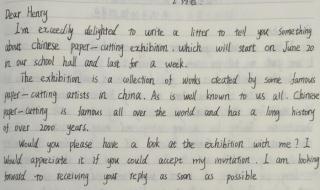 Dear Henry
I'm exceedly delighted to write a litter to tell you something
about chinese paper-cutting exhibition. which will start on June 20
in our school hall and last for a week.
The exhibition is a collection of works created by some famous
paper-cutting artists in china. As is well known to us all. Chinese
paper-cutting is famous all over the world and has a long history
of over 2000 years.
Would you please have a look at the exhibition with me? I
would appreciate it if you could accept my invitation. I am looking
forward to receiving your reply as soon as possible